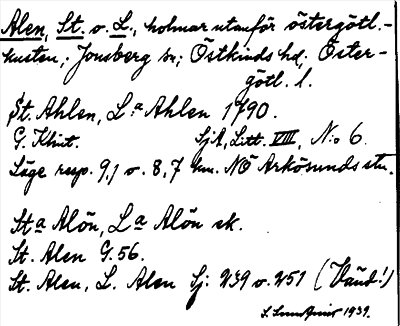 Alen, St. o. L., holmar utanför östergötl.-
kusten; Jonsberg sn; Östkinds hd; Öster-
götl. l.
St. Ahlen, L:a Ahlen 1790.
G. Klint. SjK, Litt. VIII, N:o 6.
Läge resp. 9,1 o. 8,7 km. NÖ Arkösunds stn.
Sta Alön, La Alön ek.
St. Alen G. 56.
St. Alen, L. Alen Sj: 239 o. 251 ( !)
1939.